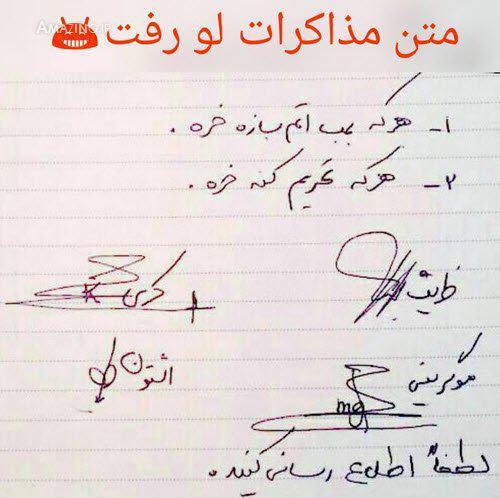 AMAZING.IR
متن مذاکرات لو رفت
۱- هرکه بمب اتم بسازه خره.
۲- هرکه تحریم کنه خره.
ظریف
کری
K
اشتون
موگرینی
mg
لطفاً اطلاع رسانی کنید.